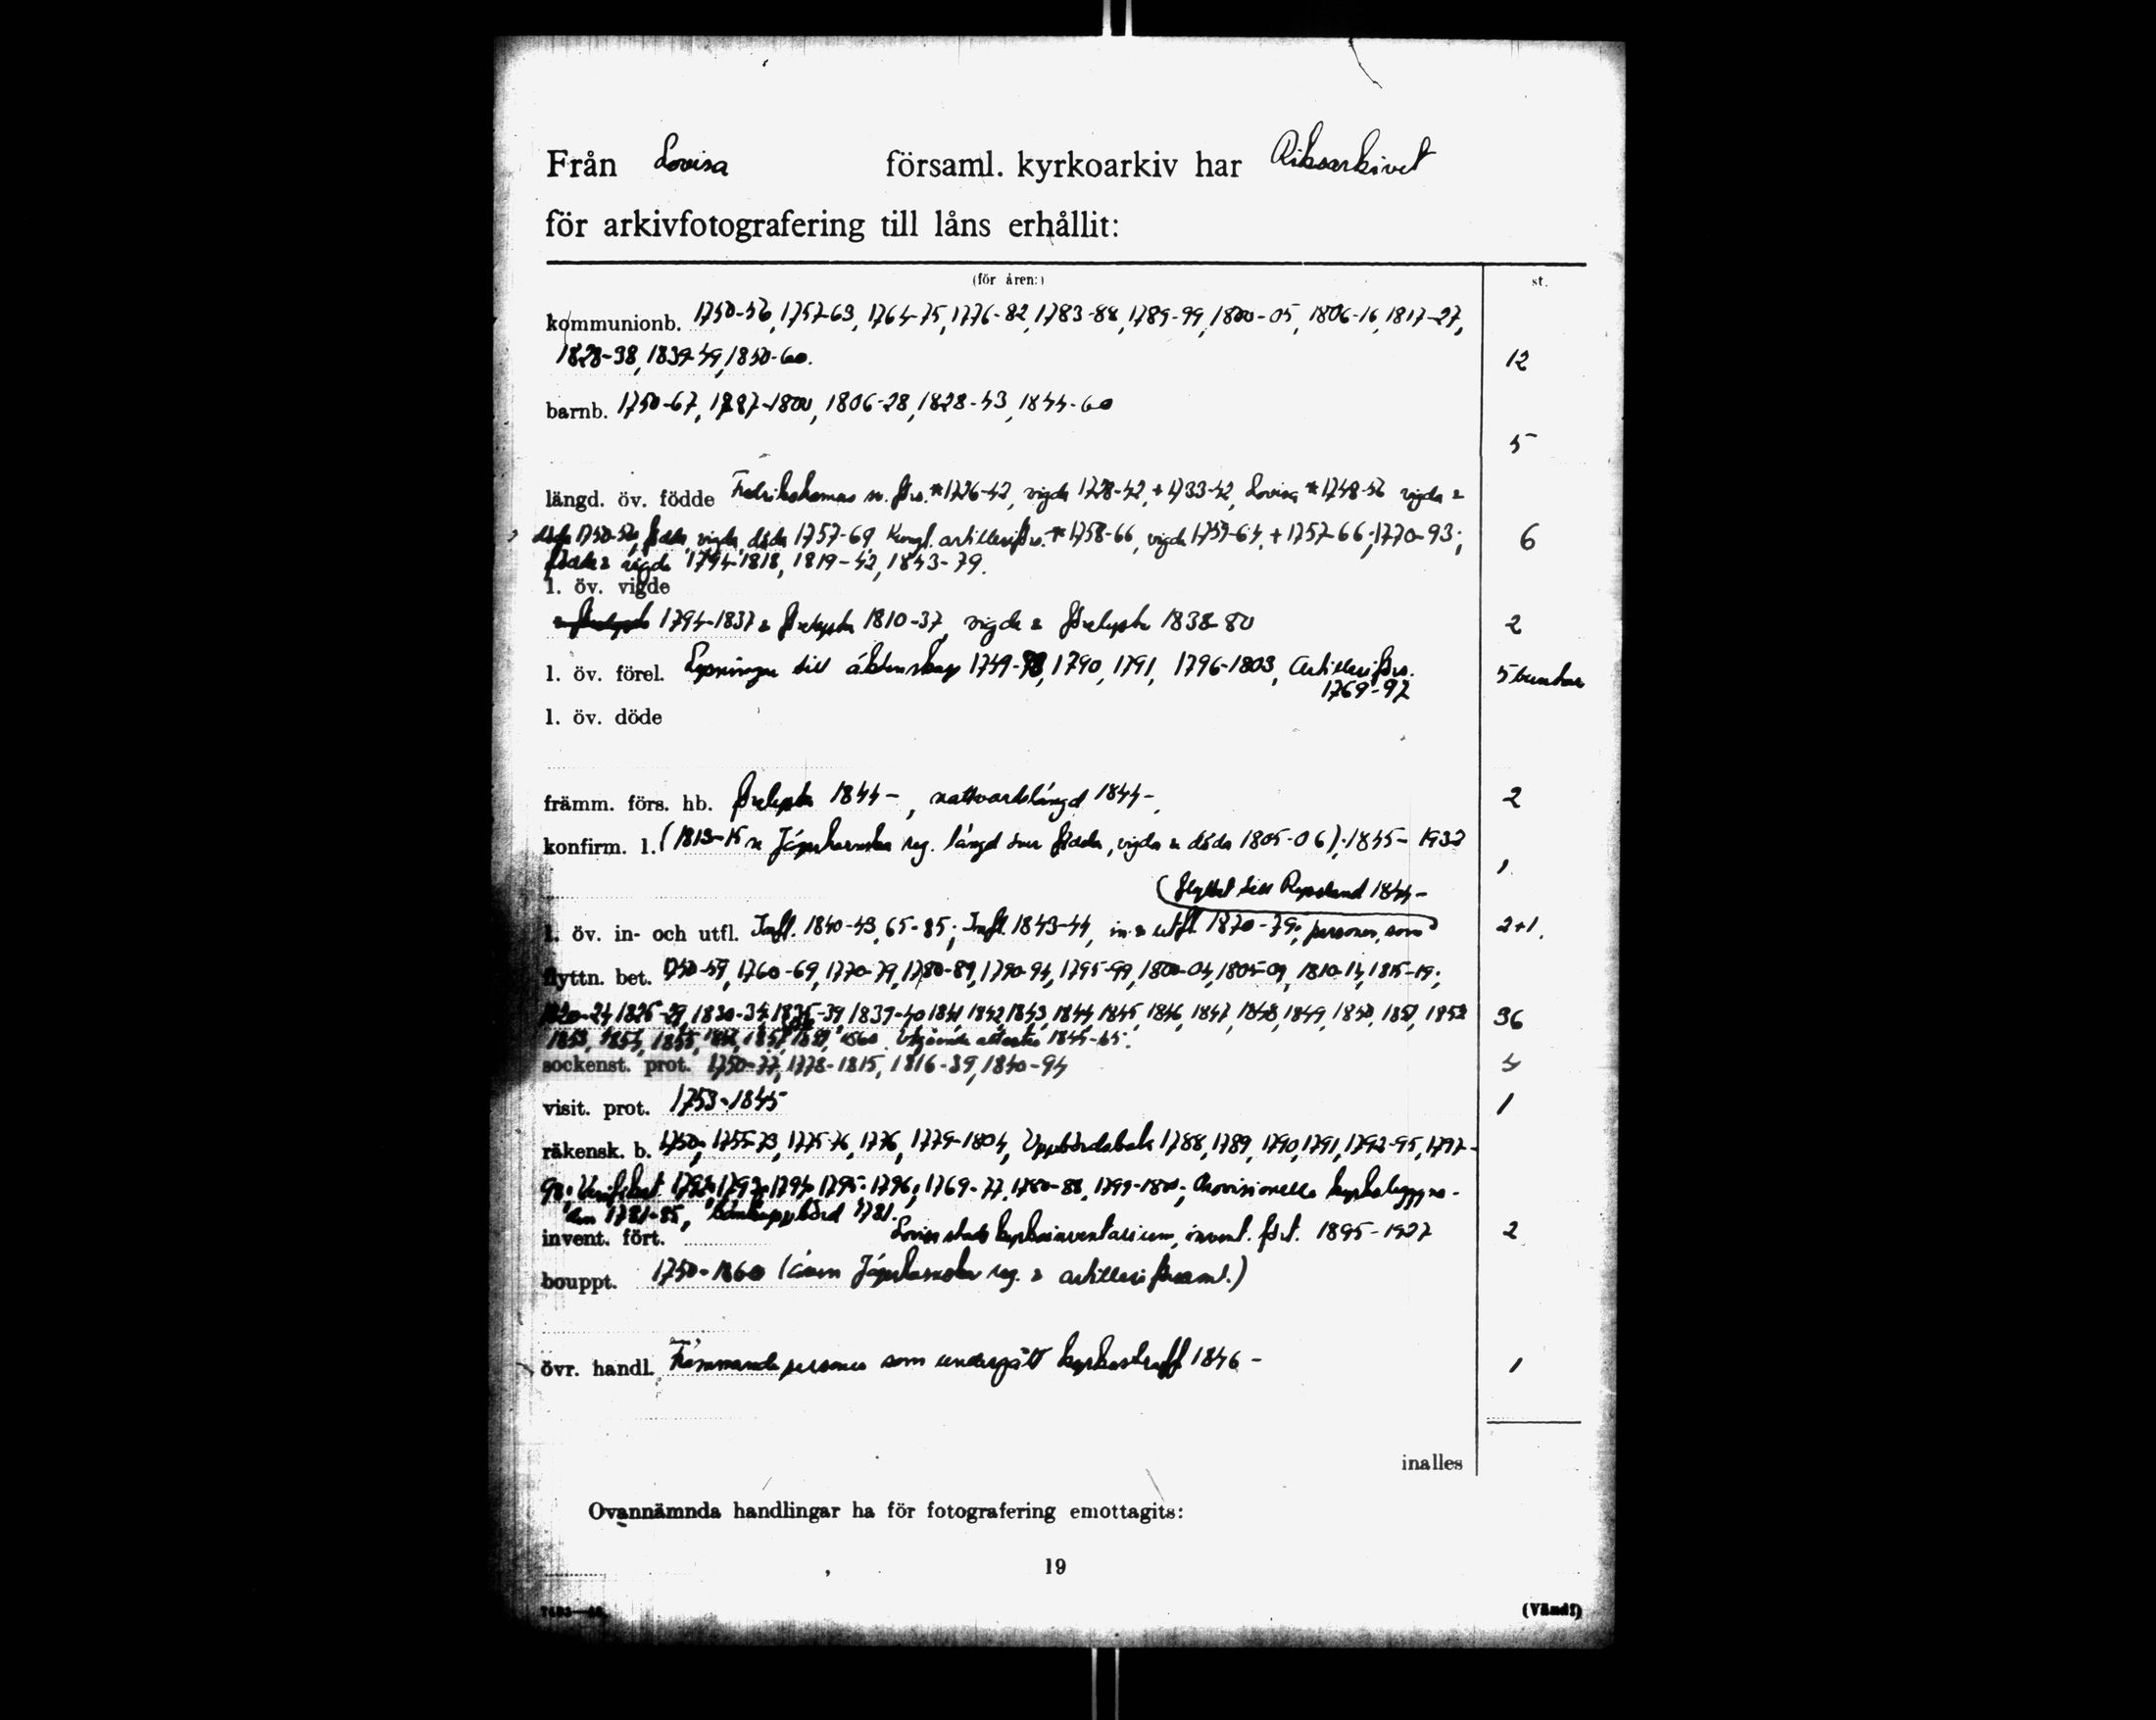 Från Lovisa församl. kyrkoarkiv har Riksarkivet
för arkivfotografering till låns erhållit:
(för åren:) st.
kommunionb. 1750-56, 1757-63, 1764-75, 1776-82, 1783-88, 1789-99, 1800-05, 1806-16, 1817-27,
1828-38, 1839-49, 1850-60. 12
barnb. 1750-67, 1787-1800, 1806-28, 1828-43, 1844-60
5
längd. öv. födde Fredrikshamns sv. förs. *1726-42, vigda 1728-42, + 1733-42, Lovisa *1748-56 vigda &
döda 1750-56, födda, vigda, döda 1757-69, Kungl. artilleriförs. *1758-66, vigda 1759-64, + 1757-66; 1770-93; 6
födda & vigda 1794-1818, 1819-42, 1843-79.
l. öv. vigde
1794-1837 & förelysta 1810-37, vigda & förelysta 1838-80 2
l. öv. förel. Lysningar till äktenskap 1749- , 1790, 1791, 1796-1803, Artilleriförs. 5 buntar
1769-97
l. öv. döde
främm. förs. hb. förelysta 1844-, nattvardslängd 1844-, 2
konfirm. l. (1813-15 Jägerhornska reg. längd över födda, vigda & döda 1805-06); 1845-1932
1
(flyttat till Ryssland 1844-
l. öv. in- och utfl. Infl. 1840-43, 65-85; Infl. 1843-44, in & utfl 1870-79; personer, som 2+1.
flyttn. bet. 1750-59, 1760-69, 1770-79, 1780-89, 1790-94, 1795-99, 1800-04, 1805-09, 1810-14, 1815-19;
1820-24, 1825-29, 1830-34, 1835-39, 1839-40, 1841, 1842, 1843, 1844, 1845, 1846, 1847, 1848, 1849, 1850, 1851, 1852 36
1853, 1854, 1855, 1856, 1857, 1859, 1860. Utgående attester 1845-65.
sockenst. prot. 1750-77, 1778-1815, 1816-39, 1840-94 4
visit. prot. 1753-1845 1
räkensk. b. 1750, 1755-73, 1775-76, 1776, 1779-1804, Uppbördsbok 1788, 1789, 1790, 1791, 1792-95, 1797-
98; Verifikat 1792, 1793, 1794, 1795, 1796; 1769-77, 1780-88, 1799-1800; Provisionella kyrkobyggna-
den 1781-85, Bänkuppbörd 1781.
invent. fört. Lovisa stads kyrkoinventarium, invent. fört. 1895-1927 2
bouppt. 1750-1860 (även Jägerhornska reg. & artilleri församl.)
övr. handl. Främmande personer som undergått kyrkostraff 1846- 1
inalles
Ovannämnda handlingar ha för fotografering emottagits:
19
(Vänd!)